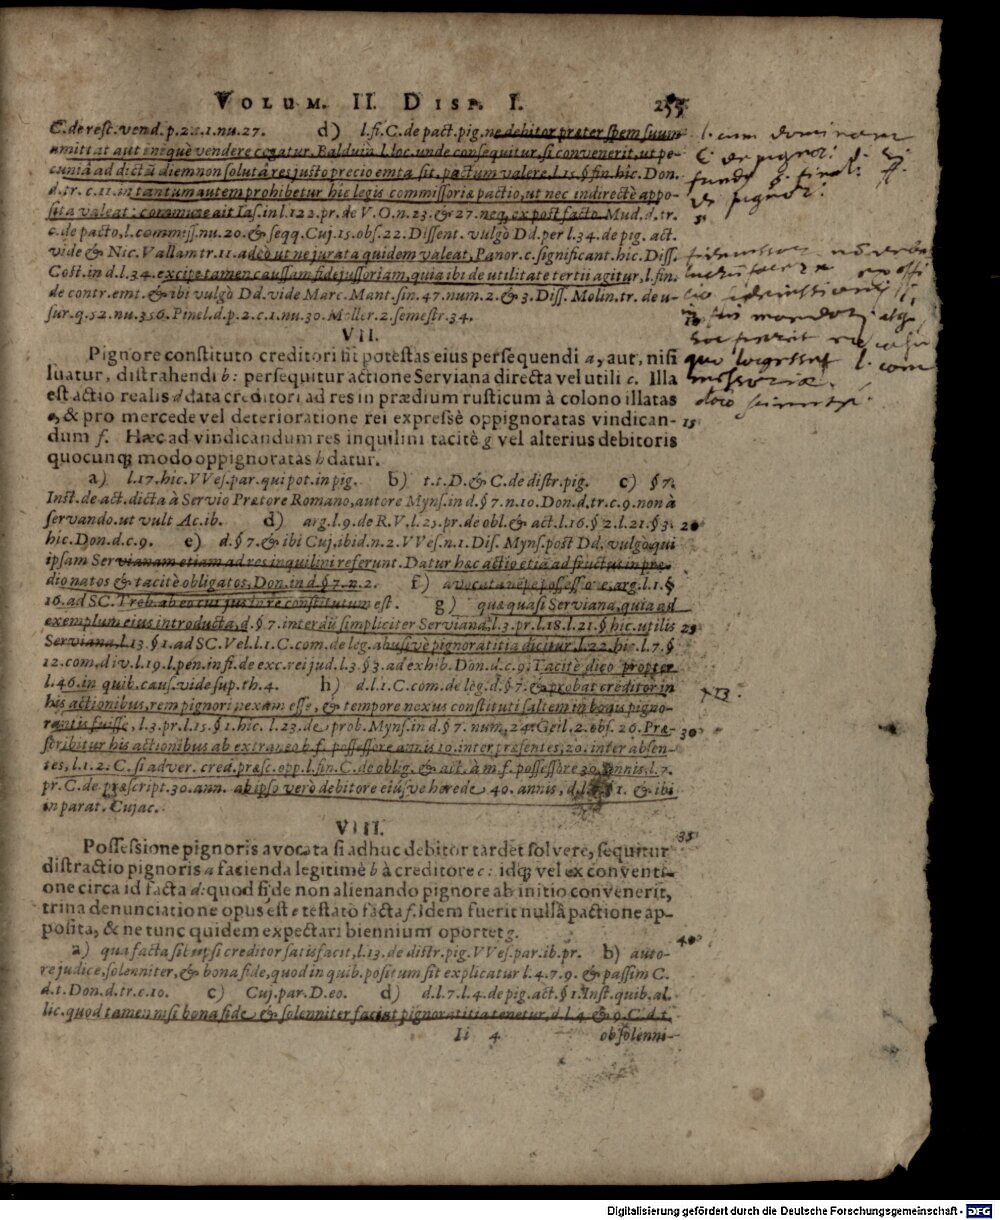 VOLUM. II. DISP. I. 255
C. de rest. vend. p. 2. c. 1. nu. 27. d) l. fi. C. de pact. pig. ne debitor præter spem suum
amittat aut iniquè vendere cogatur. Balduin. l. loc. unde consequitur, si convenerit, ut pe-
cuniâ ad dictũ diem non solutâ res justo precio emta sit, pactum valere, l. 15. § fin. hic. Don.
d. tr. c. 11. in tantum autem prohibetur hic legis commissoriæ pactio, ut nec indirectè appo-
sita valeat: commune ait Ias. in l. 122. pr. de V. O. n. 23. & 27. neq, ex post facto. Mud. d. tr. 5
c. de pacto, l. commiss. nu. 20. & seqq. Cuj. 15. obs. 22. Dissent. vulgò Dd. per l. 34. de pig. act.
vide & Nic. Vallam tr. 11. adeò ut ne jurata quidem valeat, Panor. c. significant. hic. Diss.
Cost. in d. l. 34. excipe tamen caussam fidejussoriam, quia ibi de utilitate tertii agitur, l. fin.
de contr. emt. & ibi vulgò Dd. vide Marc. Mant. sin. 47. num. 2. & 3. Diss. Molin. tr. de u-
sur. q. 52. nu. 356. Pinel. d. p. 2. c. 1. nu. 30. Moller. 2. semestr. 34. 10
VII.
Pignore constituto creditori fit potestas eius persequendi a, aut, nisi
luatur, distrahendi b: persequitur actione Serviana directa vel utili c. Illa
est actio realis d data creditori ad res in prædium rusticum à colono illatas
e, & pro mercede vel deterioratione rei expressè oppignoratas vindican- 15
dum f. Hæc ad vindicandum res inquilini tacitè g vel alterius debitoris
quocunq; modo oppignoratas h datur.
a) l. 17. hic. VVes. par. qui pot. in pig. b) t. t. D. & C. de distr. pig. c) § 7.
Inst. de act. dicta à Servio Prætore Romano, autore Myns. in d. § 7. n. 10. Don. d. tr. c. 9. non à
servando. ut vult Ac. ib. d) arg. l. 9. de R. V. l. 25. pr. de obl. & act. l. 16. § 2. l. 21. § 3. 20
hic. Don. d. c. 9. e) d. § 7. & ibi Cuj. ibid. n. 2. VVes. n. 1. Dis. Myns. post Dd. vulgo qui
ipsam Servianam etiam ad res inquilini referunt. Datur hæc actio etiã ad fructus in præ-
dio natos & tacitè obligatos, Don. in d. § 7. n. 2. f) avocata nẽpe possessore, arg. l. 1. §
16. ad SC. Treb. ab eo cui jus in re constitutum est. g) quæ quasi Serviana, quia ad
exemplum eius introducta, d. § 7. interdũ simpliciter Serviana, l. 3. pr. l. 18. l. 21. § hic. utilis 25
Serviana, l. 13. § 1. ad SC. Vel. l. 1. C. com. de leg. abusivè pignoratitia dicitur, l. 22. hic. l. 7. §
12. com. div. l. 19. l. pen. in fi. de exc. rei jud. l. 3. § 3. ad exhib. Don. d. c. 9. Tacitè dico propter
l. 46. in quib. caus. vide sup. th. 4. h) d. l. 1. C. com. de leg. d. § 7. & probat creditor in
his actionibus, rem pignori nexam esse, & tempore nexus constituti saltem in bonis pigno-
rantis fuisse, l. 3. pr. l. 15. § 1. hic. l. 23. de prob. Myns. in d. § 7. num. 24. Geil. 2. obs. 26. Præ- 30
scribitur his actionibus ab extraneo b. f. possessore annis 10. inter præsentes, 20. inter absen-
tes, l. 1. 2. C. si adver. cred. præsc. opp. l. fin. C. de oblig. & act. à m. f. possessore 30. annis, l. 7.
pr. C. de præscript. 30. ann. ab ipso verò debitore eiúsve herede 40. annis, d. l. § 1. & ibi
in parat. Cujac.
VIII.
Possessione pignoris avocata si adhuc debitor tardet solvere, sequitur 35
distractio pignoris a facienda legitimè b à creditore c: idq; vel ex conventi-
one circa id facta d: quod si de non alienando pignore ab initio convenerit,
trina denunciatione opus est e testatò facta f. idem fuerit nullâ pactione ap-
posita, & ne tunc quidem expectari biennium oportet g.
a) qua facta sit etsi creditor satisfacit, l. 13. de distr. pig. VVes. par. ib. pr. b) auto- 40
re judice, solenniter, & bona fide, quod in quib. positum sit explicatur l. 4. 7. 9. & passim C.
d. t. Don. d. tr. c. 10. c) Cuj. par. D. eo. d) d. l. 7. l. 4. de pig. act. § 1. Inst. quib. al.
lic. quod tamen nisi bona fide & solenniter faciat pignoratitia tenetur, d. l. 4. & 9. C. d. t.
Ii 4 ob solenni-
Digitalisierung gefördert durch die Deutsche Forschungsgemeinschaft - DFG